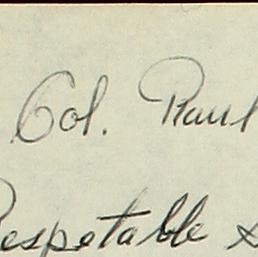 Col. Raul
Respetable S